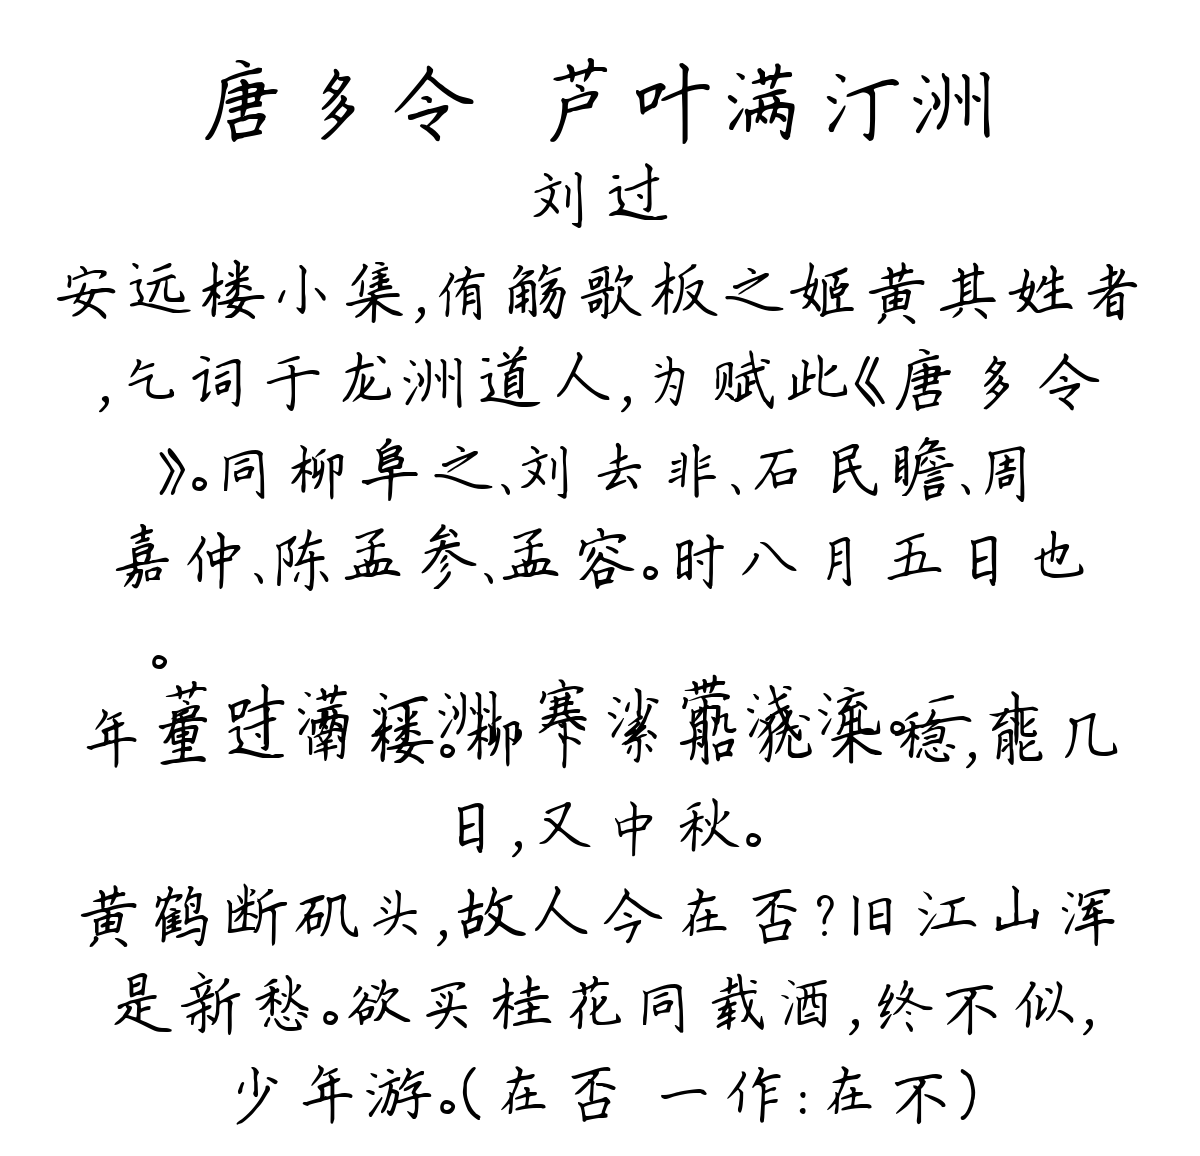 唐多令 芦叶满汀洲
刘过
安远楼小集,侑觞歌板之姬黄其姓者
,乞词于龙洲道人,为赋此《唐多令
》。同柳阜之、刘去非、石民瞻、周
嘉仲、陈孟参、孟容。时八月五日也
。
芦叶满汀洲,寒沙带浅流。二十
年重过南楼。柳下系船犹未稳,能几
日,又中秋。
黄鹤断矶头,故人今在否?旧江山浑
是新愁。欲买桂花同载酒,终不似,
少年游。(在否 一作:在不)